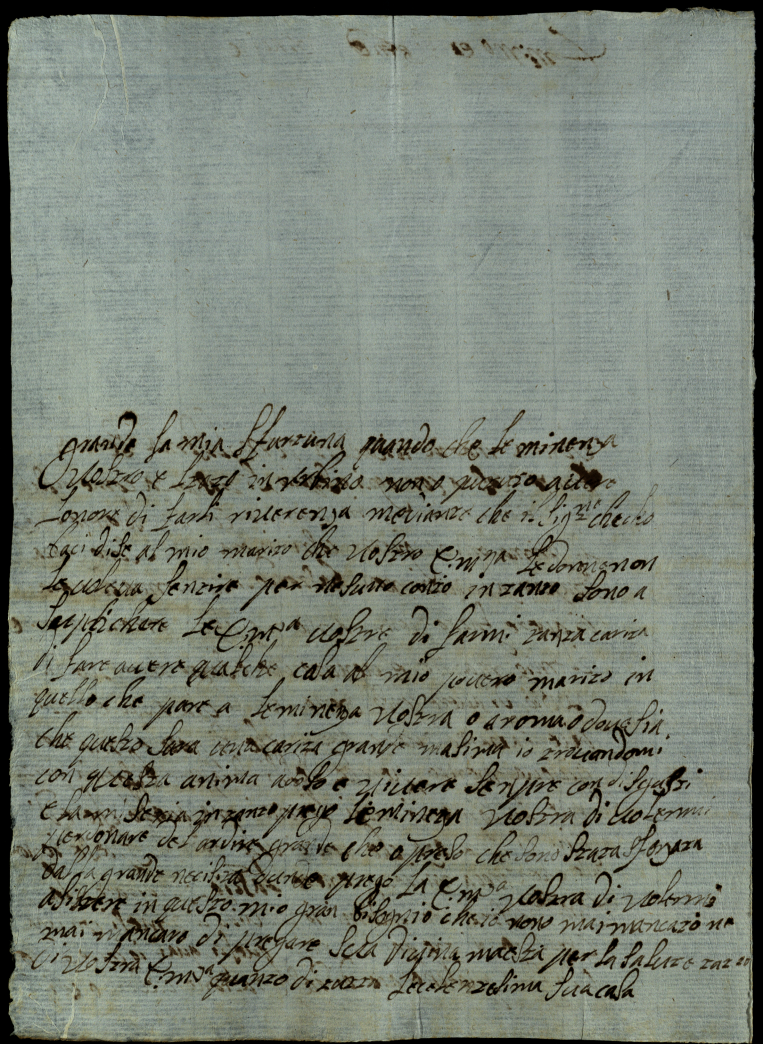 Grande la mia Sfortuna quando che le minenza
Vostra e stato in non o potuto avere
lonore di farli riverenza che il Sig.re checho
al mio marito che Vostro E.mza le donne non
le voleva Sentire per nesuno conto in tanto Sono a
Suplichare Le E.mza vostre di farmi tanta carita
di fare avere qualche casa al mio povero marito in
quello che pare a leminenza Vostra o a roma o dove sia
che questo Sara una carita grande masima io trovandomi
con questa anima adoso e vivere Senpre con disgusti
e la miseria in tanto prego leminenza Vostra di volermi
perdonare del ardire grande che o preso che Sono Stata Sforzata
dalla grande necesita dunque prego La E.mza Vostra di volermi
asistere in questo mio gran bisognio che io nono mai mancato ne
mai mancaro di pregare Sua Divina maesta per la Salute
di Vostra E.mza quanto di tutta Sua casa